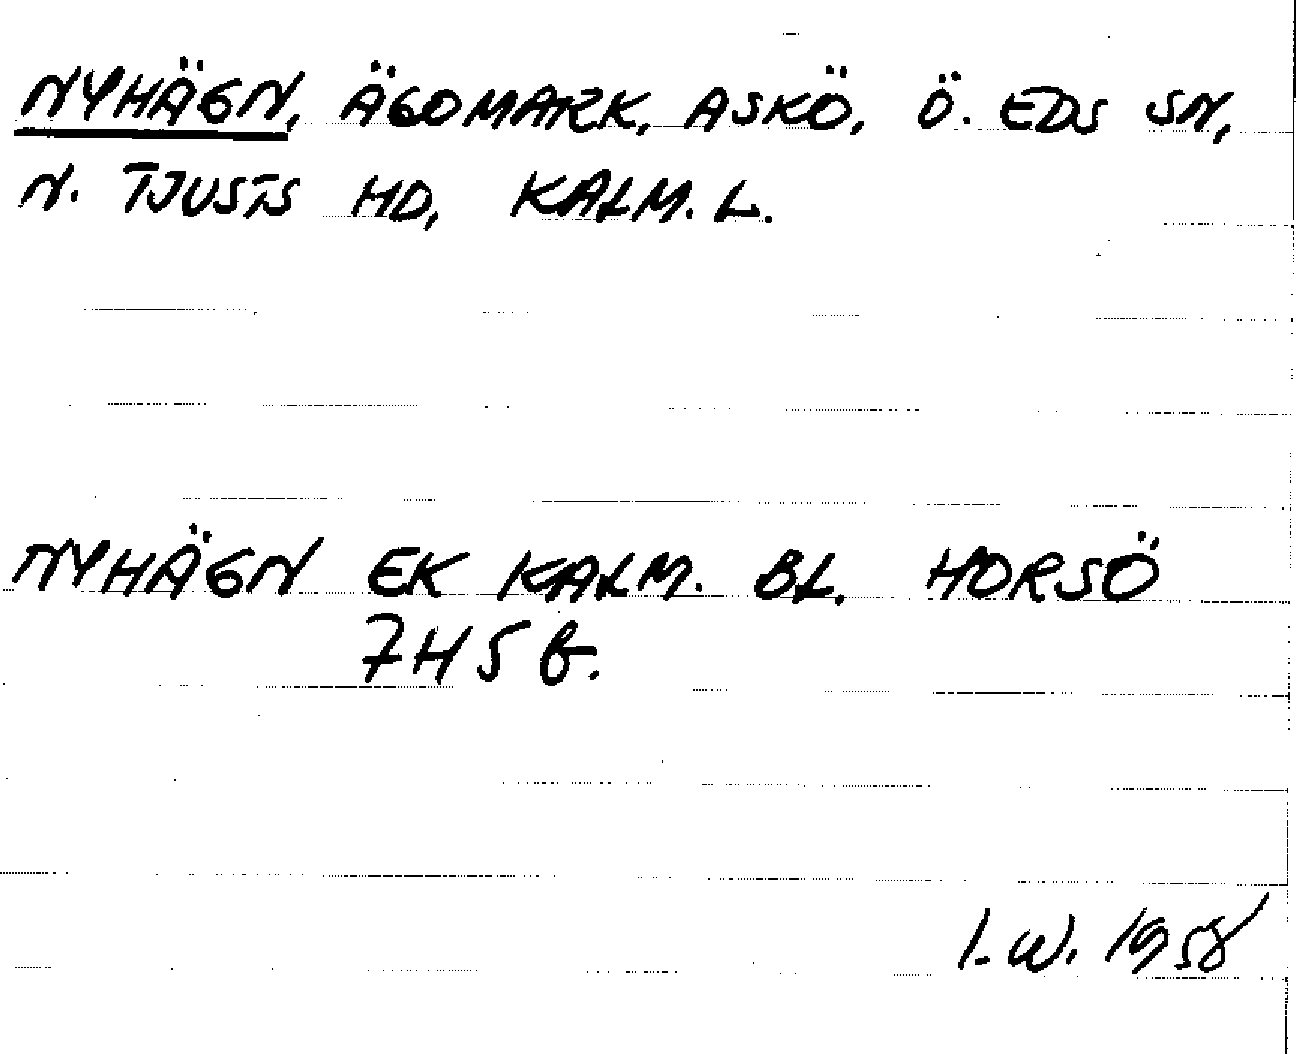 NYHÄGN, ÄGOMARK, ASKÖ, Ö. EDS SN,
N. TJUSTS HD, KALM. L.
NYHÄGN EK KALM. BL. HORSÖ
7H5 b.
I.W. 1958